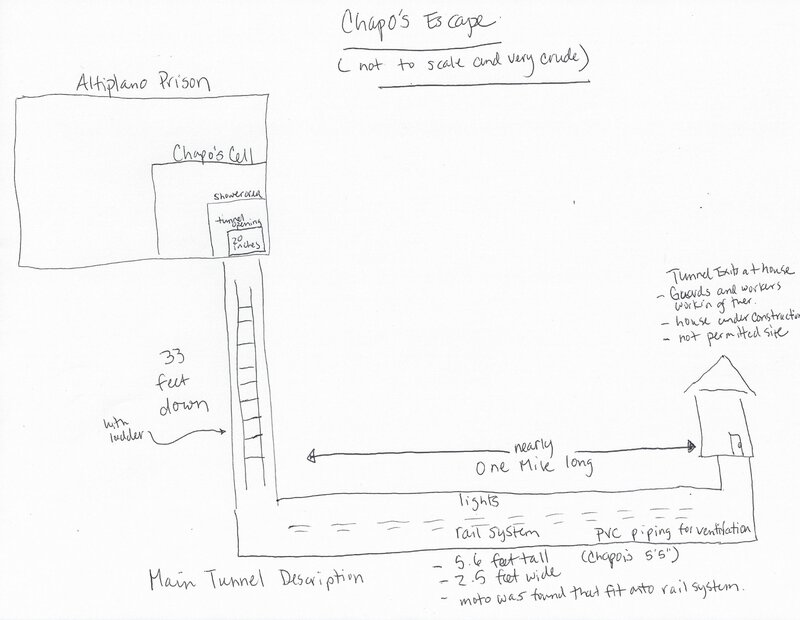 Chapo's Escape
(not to scale and very crude)
Altiplano Prison
Chapo's Cell
shower area
tunnel
opening
20
inches
33
feet
down
with
ladder
Tunnel Exits at house
- Guards and workers
- house under construction
- not permitted site
nearly
One Mile long
lights
rail system
PVC piping for ventilation
Main Tunnel Description
- 5.6 feet tall (Chapo is 5'5")
- 2.5 feet wide
- moto was found that fit onto rail system.